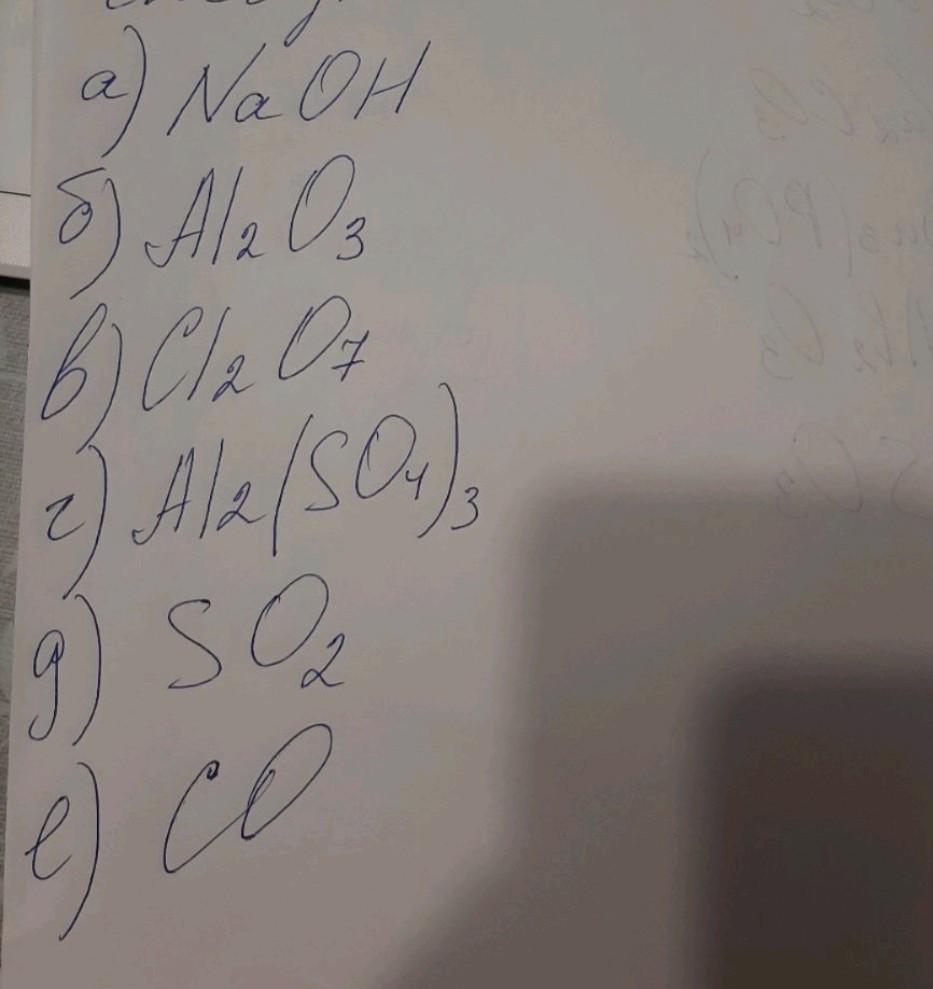 а) NaOH
б) Al₂O₃
в) Cl₂O₇
г) Al₂(SO₄)₃
д) SO₂
е) CO